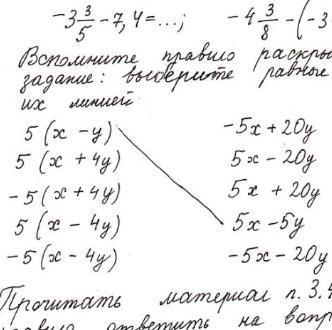 -3 3/5 - 7,4 = ...; -4 3/8 - (-3
Вспомните правило раскры
задание: выберите равные
их линией
5(x - y) -5x + 20y
5(x + 4y) 5x - 20y
-5(x + 4y) 5x + 20y
5(x - 4y) 5x - 5y
-5(x - 4y) -5x - 20y
Прочитать материал п. 3.4
ответить на вопр